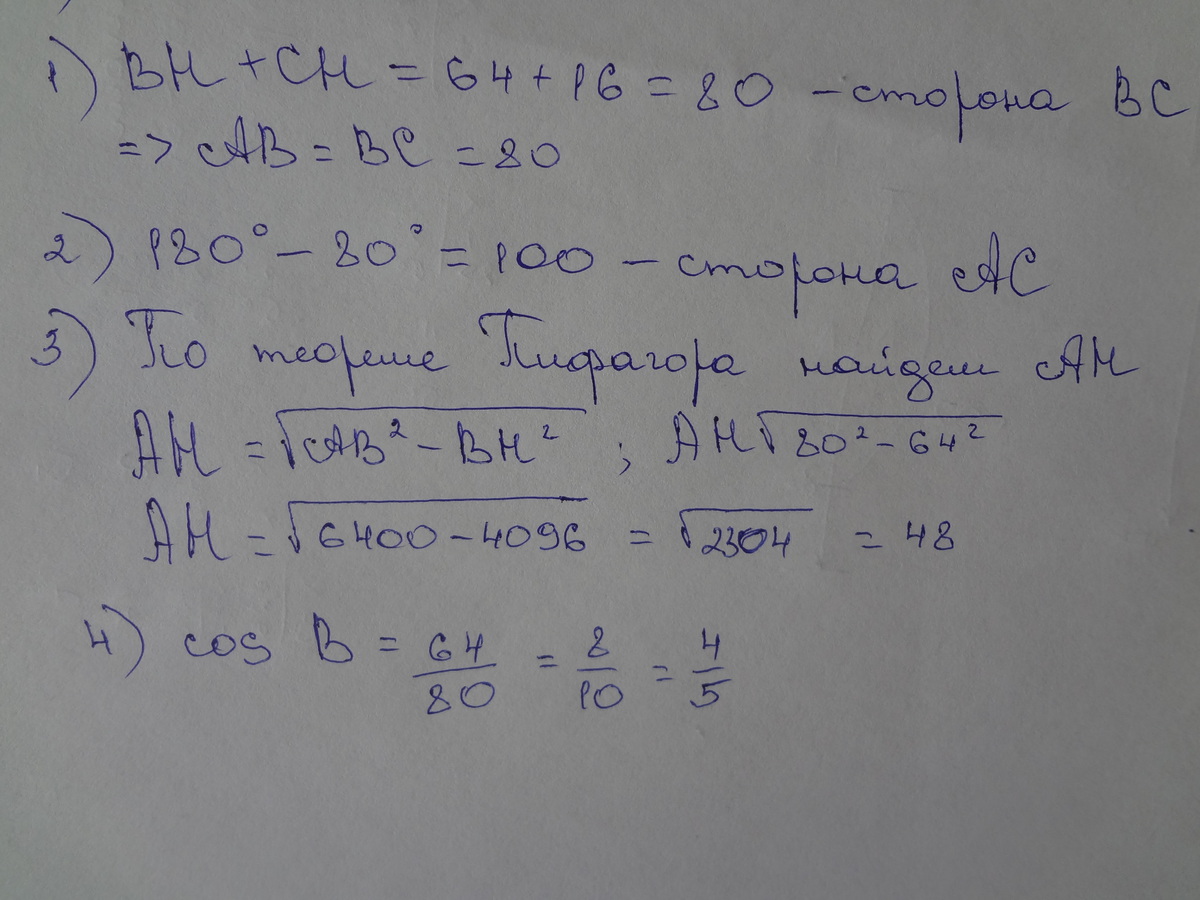 1) BH + CH = 64 + 16 = 80 – сторона BC
=> AB = BC = 80
2) 180° – 80° = 100 – сторона AC
3) По теореме Пифагора найдем AH
AH = √AB² – BH² ; AH √80² – 64²
AH = √6400 – 4096 = √2304 = 48
4) cos B = 64/80 = 8/10 = 4/5